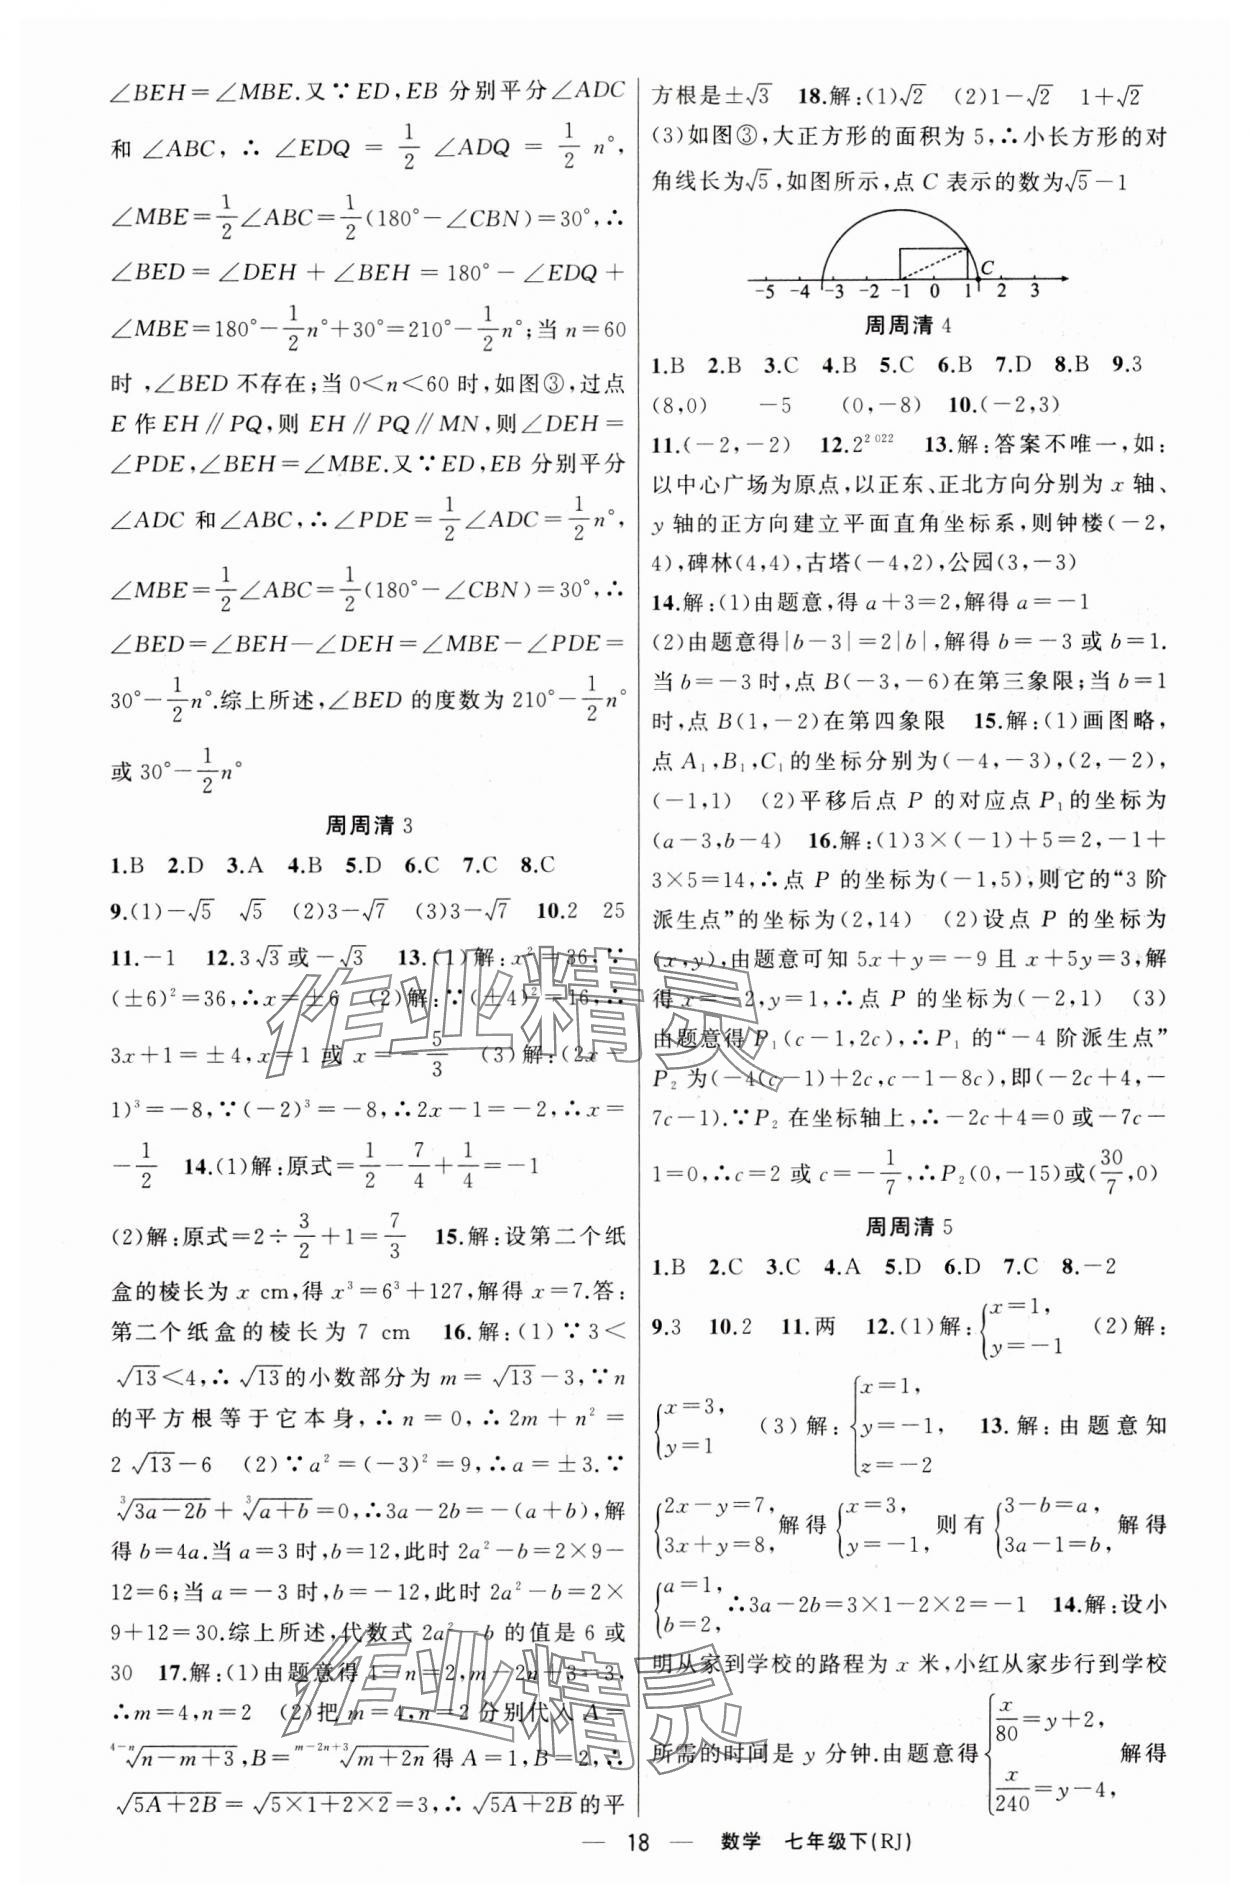 ∠BEH=∠MBE.又∵ED,EB 分别平分∠ADC
和 ∠ABC, ∴ ∠EDQ = 1/2 ∠ADQ = 1/2 n°,
∠MBE=1/2∠ABC=1/2(180°-∠CBN)=30°,∴
∠BED=∠DEH+∠BEH=180°-∠EDQ+
∠MBE=180°-1/2n°+30°=210°-1/2n°;当 n=60
时,∠BED 不存在;当 0<n<60 时,如图③,过点
E 作 EH∥PQ,则 EH∥PQ∥MN,则∠DEH=
∠PDE,∠BEH=∠MBE.又∵ED,EB 分别平分
∠ADC 和∠ABC,∴∠PDE=1/2∠ADC=1/2n°,
∠MBE=1/2∠ABC=1/2(180°-∠CBN)=30°,∴
∠BED=∠BEH-∠DEH=∠MBE-∠PDE=
30°-1/2n°.综上所述,∠BED 的度数为 210°-1/2n°
或 30°-1/2n°
周周清 3
1.B 2.D 3.A 4.B 5.D 6.C 7.C 8.C
9.(1)-√5 √5 (2)3-√7 (3)3-√7 10.2 25
11.-1 12.3√3或-√3 13.(1)解:x²=36,∵
(±6)²=36,∴x=±6 (2)解:∵(±4)²=16,∴
3x+1=±4,x=1 或 x=-5/3 (3)解:(2x-
1)³=-8,∵(-2)³=-8,∴2x-1=-2,∴x=
-1/2 14.(1)解:原式=1/2-7/4+1/4=-1
(2)解:原式=2÷3/2+1=7/3 15.解:设第二个纸
盒的棱长为 x cm,得 x³=6³+127,解得 x=7.答:
第二个纸盒的棱长为 7 cm 16.解:(1)∵3<
√13<4,∴√13的小数部分为 m=√13-3,∵n
的平方根等于它本身,∴n=0,∴2m+n²=
2√13-6 (2)∵a²=(-3)²=9,∴a=±3.∵
³√(3a-2b)+³√(a+b)=0,∴3a-2b=-(a+b),解
得 b=4a.当 a=3 时,b=12,此时 2a²-b=2×9-
12=6;当 a=-3 时,b=-12,此时 2a²-b=2×
9+12=30.综上所述,代数式 2a²-b 的值是 6 或
30 17.解:(1)由题意得 4-n=2,m-2n+3=3,
∴m=4,n=2 (2)把 m=4,n=2 分别代入 A=
⁴⁻ⁿ√(n-m+3),B=ᵐ⁻²ⁿ⁺³√(m+2n)得 A=1,B=2,∴
√(5A+2B)=√(5×1+2×2)=3,∴√(5A+2B)的平
方根是±√3 18.解:(1)√2 (2)1-√2 1+√2
(3)如图③,大正方形的面积为 5,∴小长方形的对
角线长为√5,如图所示,点 C 表示的数为√5-1
C
-5 -4 -3 -2 -1 0 1 2 3
周周清 4
1.B 2.B 3.C 4.B 5.C 6.B 7.D 8.B 9.3
(8,0) -5 (0,-8) 10.(-2,3)
11.(-2,-2) 12.2²⁰²² 13.解:答案不唯一,如:
以中心广场为原点,以正东、正北方向分别为 x 轴、
y 轴的正方向建立平面直角坐标系,则钟楼(-2,
4),碑林(4,4),古塔(-4,2),公园(3,-3)
14.解:(1)由题意,得 a+3=2,解得 a=-1
(2)由题意得|b-3|=2|b|,解得 b=-3 或 b=1.
当 b=-3 时,点 B(-3,-6)在第三象限;当 b=1
时,点 B(1,-2)在第四象限 15.解:(1)画图略,
点 A₁,B₁,C₁的坐标分别为(-4,-3),(2,-2),
(-1,1) (2)平移后点 P 的对应点 P₁的坐标为
(a-3,b-4) 16.解:(1)3×(-1)+5=2,-1+
3×5=14,∴点 P 的坐标为(-1,5),则它的“3 阶
派生点”的坐标为(2,14) (2)设点 P 的坐标为
(x,y),由题意可知 5x+y=-9 且 x+5y=3,解
得 x=-2,y=1,∴点 P 的坐标为(-2,1) (3)
由题意得 P₁(c-1,2c),∴P₁ 的“-4 阶派生点”
P₂ 为(-4(c-1)+2c,c-1-8c),即(-2c+4,-
7c-1).∵P₂ 在坐标轴上,∴-2c+4=0 或-7c-
1=0,∴c=2 或 c=-1/7,∴P₂(0,-15)或(30/7,0)
周周清 5
1.B 2.C 3.C 4.A 5.D 6.D 7.C 8.-2
9.3 10.2 11.两 12.(1)解:{x=1, y=-1 (2)解:
{x=3, y=1 (3)解:{x=1, y=-1, z=-2 13.解:由题意知
{2x-y=7, 3x+y=8, 解得{x=3, y=-1, 则有{3-b=a, 3a-1=b, 解得
{a=1, b=2, ∴3a-2b=3×1-2×2=-1 14.解:设小
明从家到学校的路程为 x 米,小红从家步行到学校
所需的时间是 y 分钟.由题意得{x/80=y+2, x/240=y-4, 解得
— 18 — 数学 七年级下(RJ)
作业精灵
作业精灵